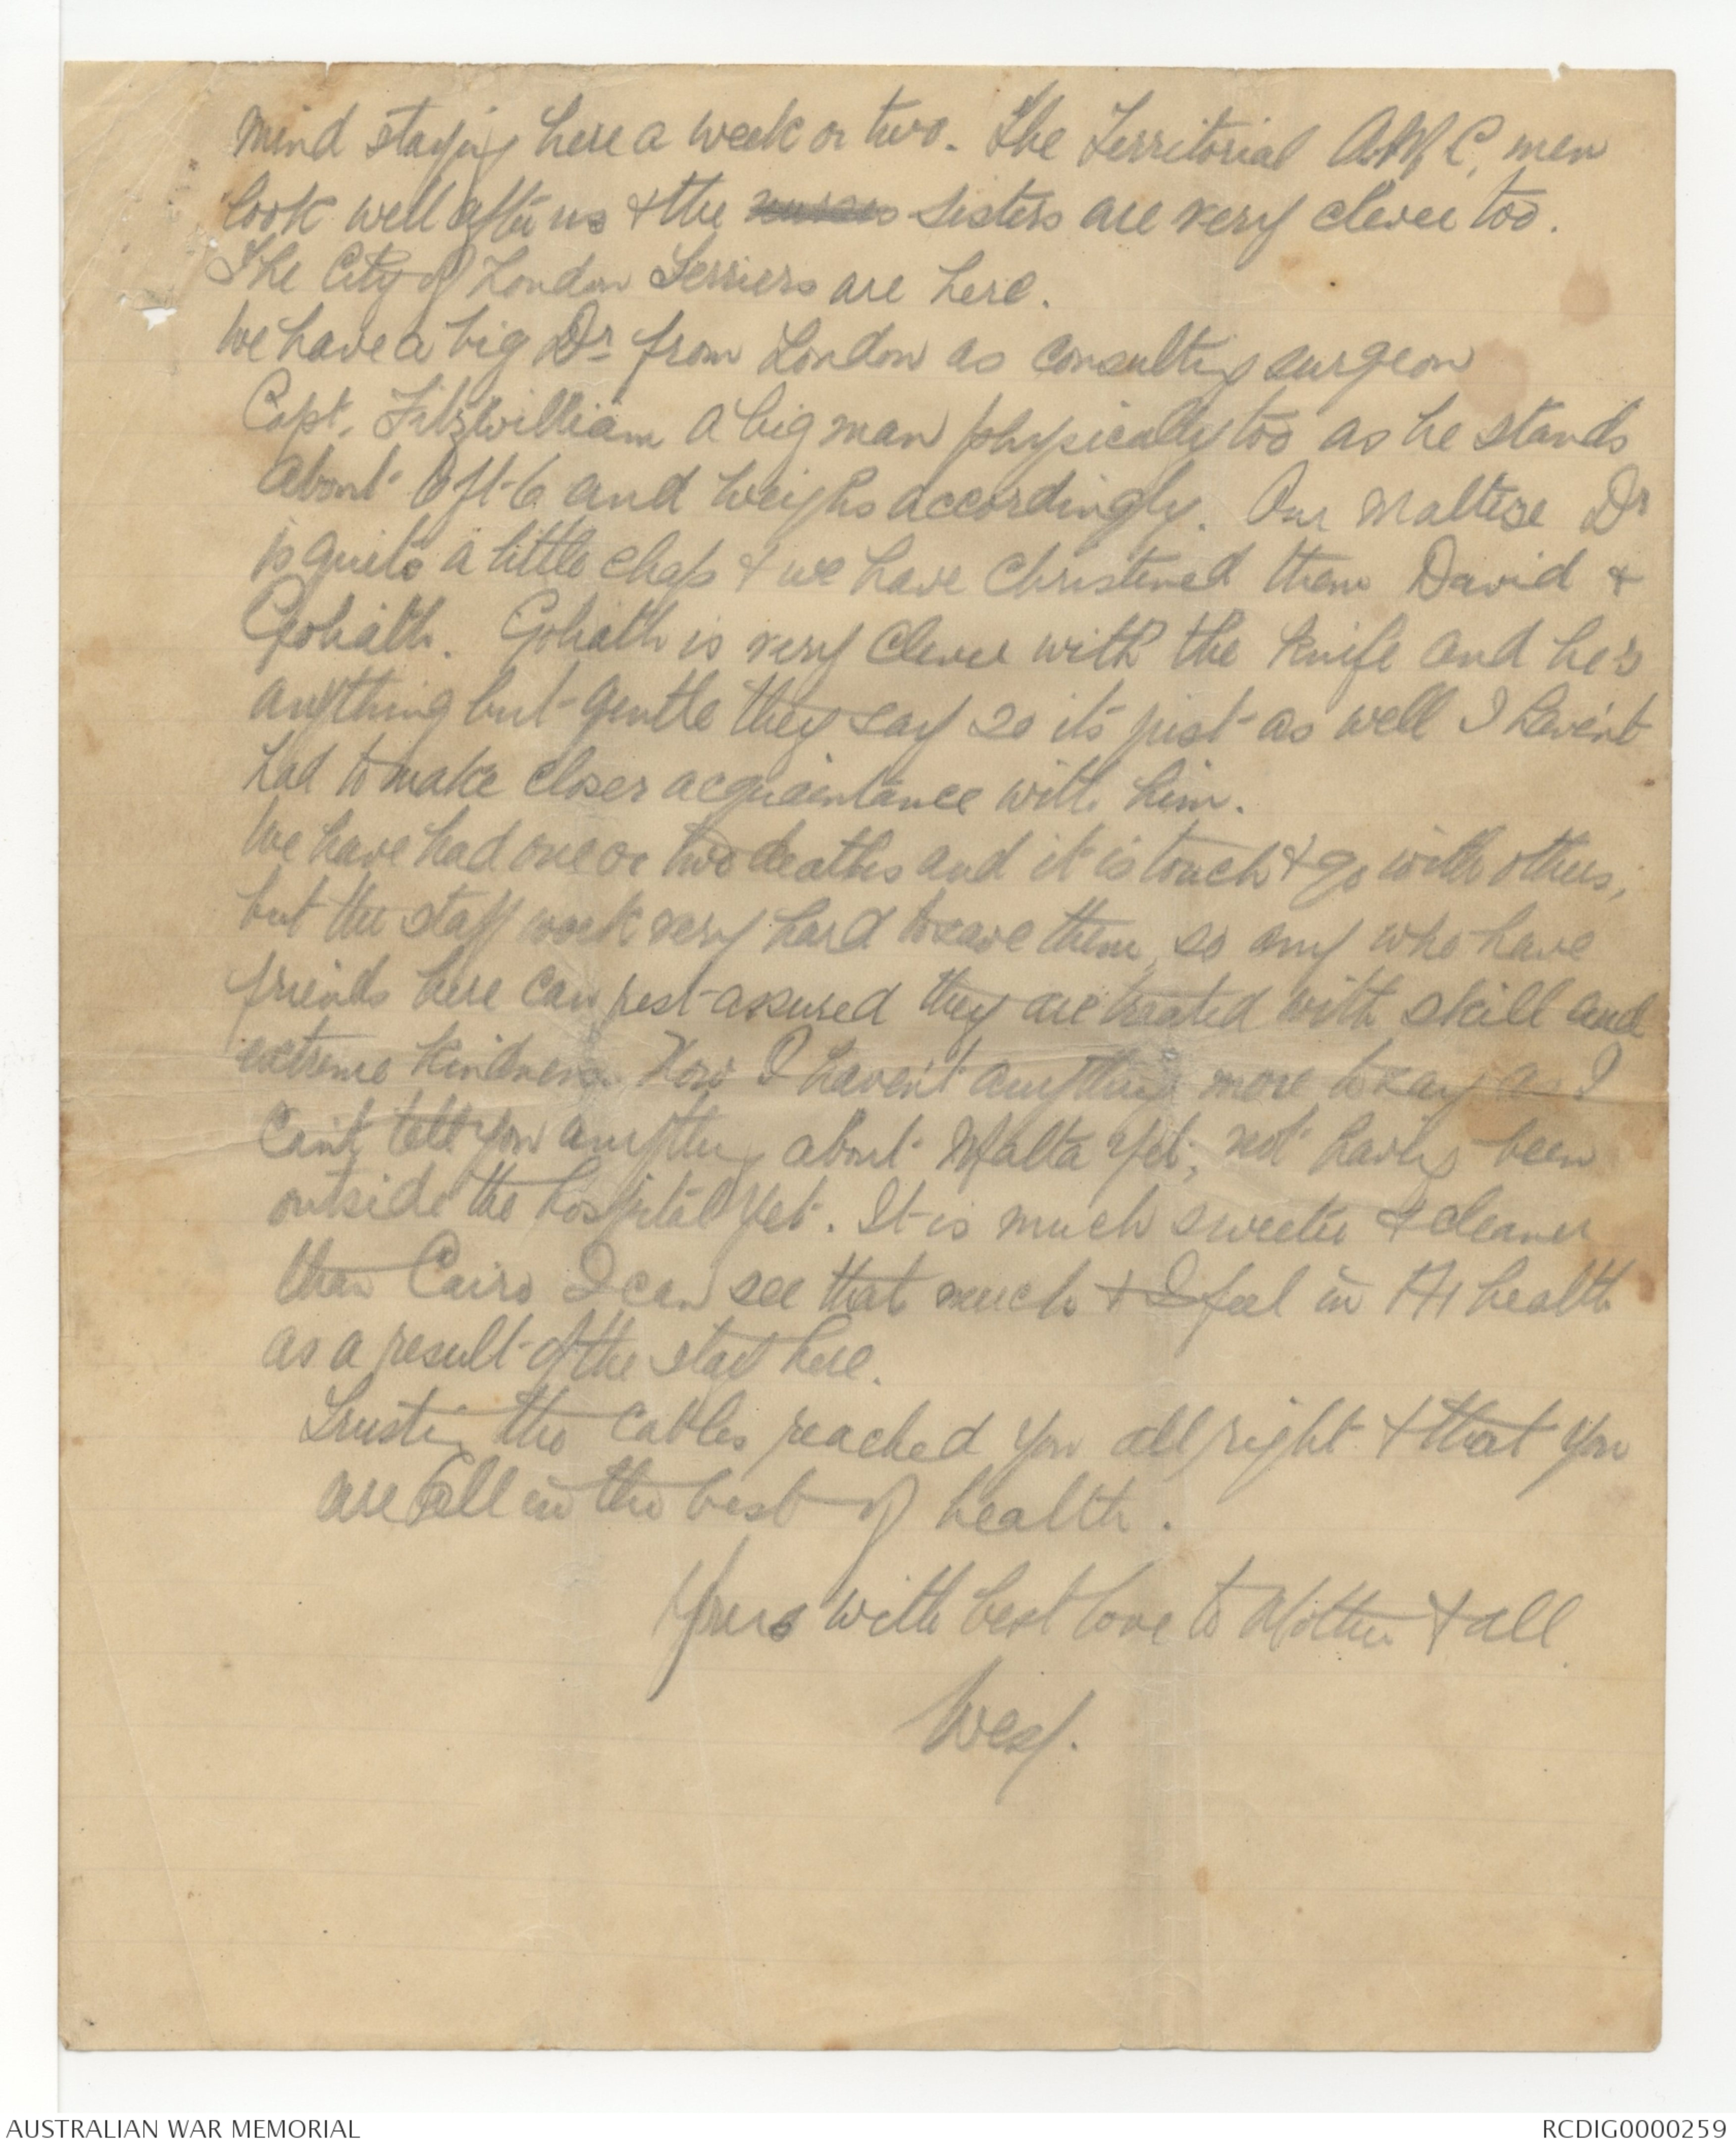 mind staying here a week or two. The Territorial A.M.C. men
look well after us & the nurses Sisters are very clever too.
The City of London Terriers are here.
We have a big Dr from London as consulting surgeon
Capt. Fitzwilliam a big man physically too as he stands
about 6ft-6 and weighs accordingly. Our Maltese Dr
is quite a little chap & we have Christened them David &
Goliath. Goliath is very clever with the knife and he's
anything but gentle they say so it's just as well I haven't
had to make closer acquaintance with him.
We have had one or two deaths and it is touch & go with others,
but the staff work very hard to save them, so any who have
friends here can rest assured they are treated with skill and
extreme kindness. Now I haven't anything more to say as I
can't tell you anything about Malta yet, not having been
outside the hospital yet. It is much sweeter & cleaner
than Cairo I can see that much & I feel in A1 health
as a result of the stay here.
Trusting the cables reached you all right & that you
are all in the best of health.
Yours with best love to Mother & all
Wesy.
AUSTRALIAN WAR MEMORIAL
RCDIG0000259